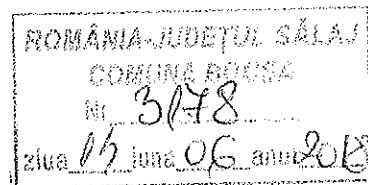 ROMÂNIA-JUDEȚUL SĂLAJ
COMUNA BOCȘA
Nr. 3178
ziua luna 06 anul 2018